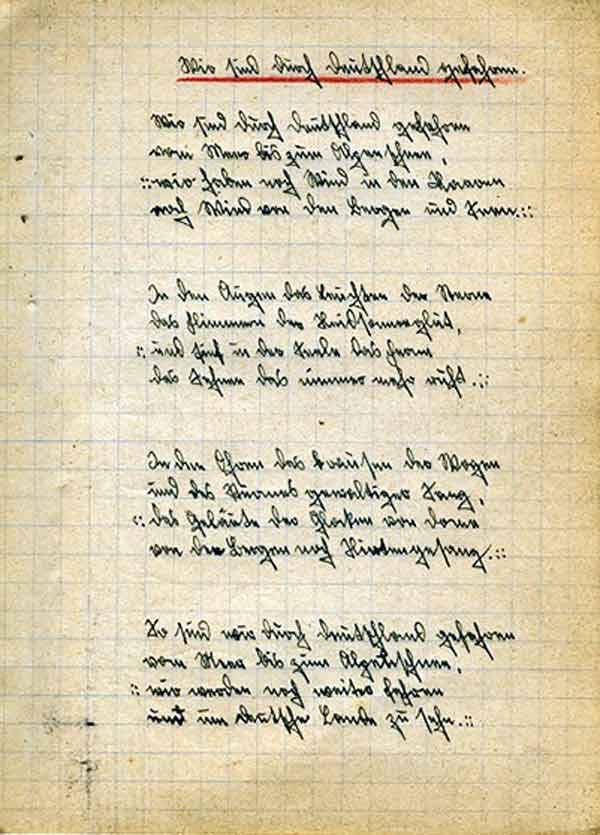 Wir sind durch Deutschland gefahren.
Wir sind durch Deutschland gefahren
vom Meer bis zum Alpenschnee,
:: wir haben noch Wind in den Haaren
noch Wind von den Bergen und Seen.::
In den Augen das Leuchten der Sterne
das Flimmern der Heidsonnenglut,
:: und tief in der Seele das Ferne
das Sehnen das immer mehr ruht.::
In den Ohren das Brausen der Wogen
und des Sturmes gewaltiger Sang,
:: das Geläute der Glocken vom Dome
von den Bergen noch Hirtengesang.::
So sind wir durch Deutschland gefahren
vom Meer bis zum Alpenschnee,
:: wir werden noch weiter fahren
und um deutsche Lande zu sehn.::